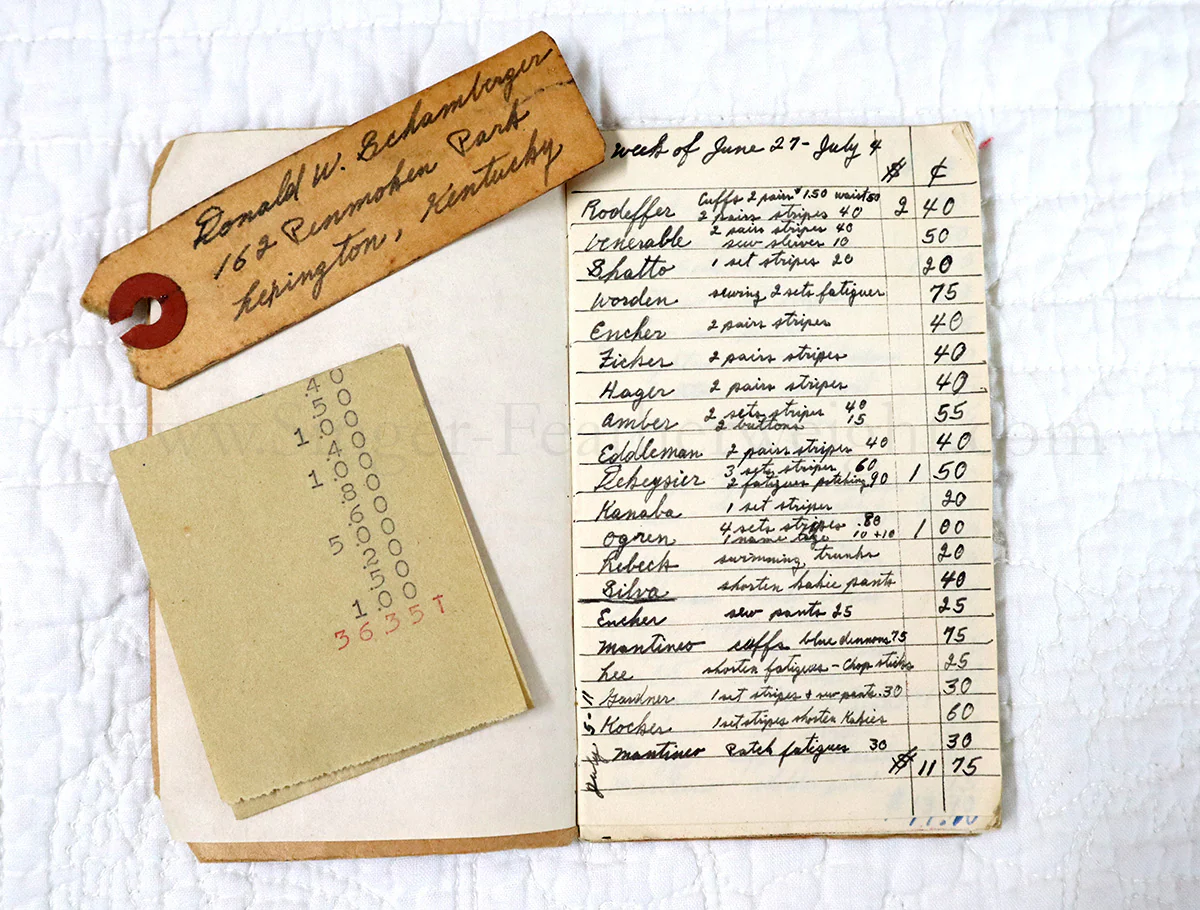 Donald W. Schamberger
162 Penmoken Park
Lexington, Kentucky
.40
.50
1.00
.40
1.40
.80
.60
5.00
.25
.50
1.00
363.5T
week of June 27 - July 4
$ ¢
Rodeffer Cuffs 2 pairs $1.50 waist 50 2 40
2 pairs stripes 40
Venerable 2 pairs stripes 40 50
sew sleever 10
Shatto 1 set stripes 20 20
Worden sewing 2 sets fatigues 75
Encher 2 pairs stripes 40
Zicker 2 pairs stripes 40
Hager 2 pairs stripes 40
Amber 2 sets stripes 40 55
2 buttons 15
Eddleman 2 pairs stripes 40 40
Dekeysier 3 sets stripes 60 1 50
2 fatigues patching 90
Kanaba 1 set stripes 20
Ogren 4 sets stripes .80 1 00
1 name tage 10 +10
Rebeck swimming trunks 20
Silva shorten kakie pants 40
Encher sew pants 25 25
Mantineo cuffs blue dennoms 75 75
Lee shorten fatigues - Chop sticks 25
Gardner 1 set stripes + sew pants .30 30
Kocher 1 set stripes shorten Kakies 60
Mantineo Patch fatigues 30 30
July 5-11
$ 11 75